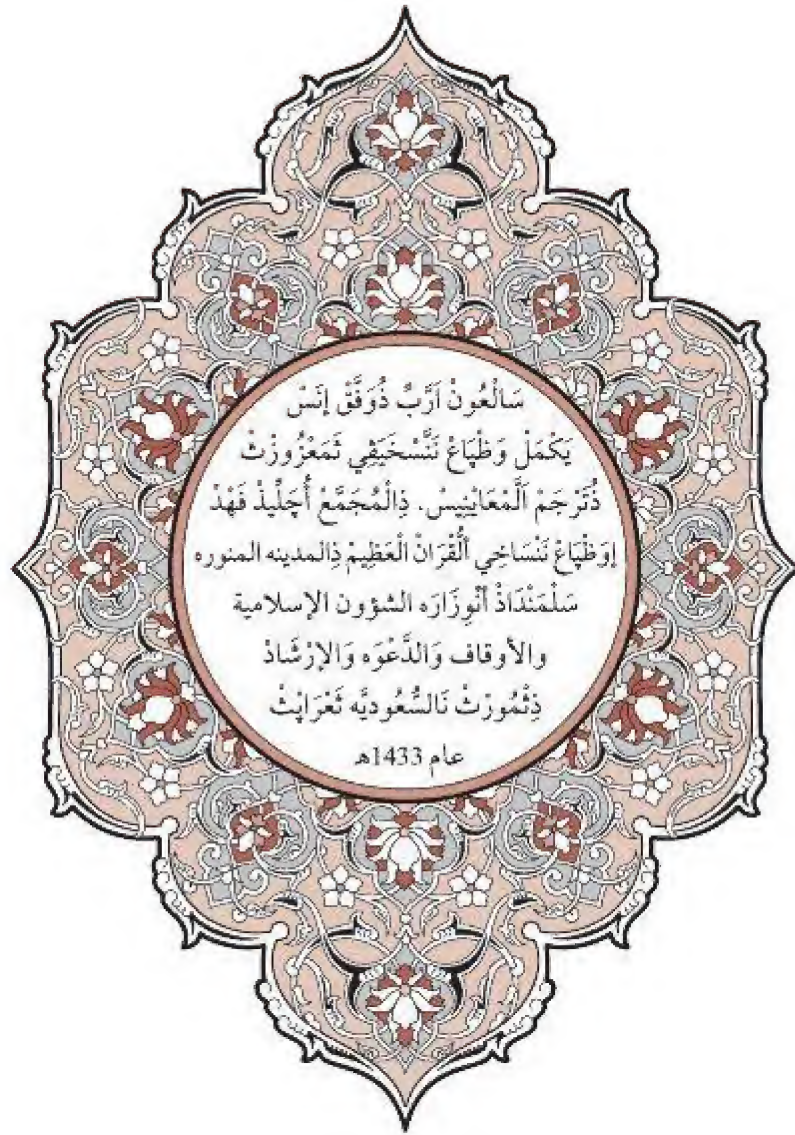 سَالْعُونْ اَرَّبِّ ذُوَفَّقْ إِنَسْ
يَكْمَلْ وَظْپَاعْ نَنَّسْخَيَڨِي ثَمَعْزُوزْثْ
ذُتَرْجَمْ اَلَّمْعَايْنِيسْ. ذِالْمُجَمَّعْ أُجَلِّيذْ فَهْذْ
إِوَظْپَاعْ نَنْسَاخِي اَلْقُرَانْ الْعَظِيمْ ذِالمدينه المنوره
سَلْمَنْدَاذْ اَنْوِزَارَه الشؤون الإسلامية
والأوقاف وَالدَّعْوَه وَالإِرْشَادْ
ذِثْمُورْثْ نَالسُّعُوديَّه ثَعْرَاپْثْ
عام 1433هـ